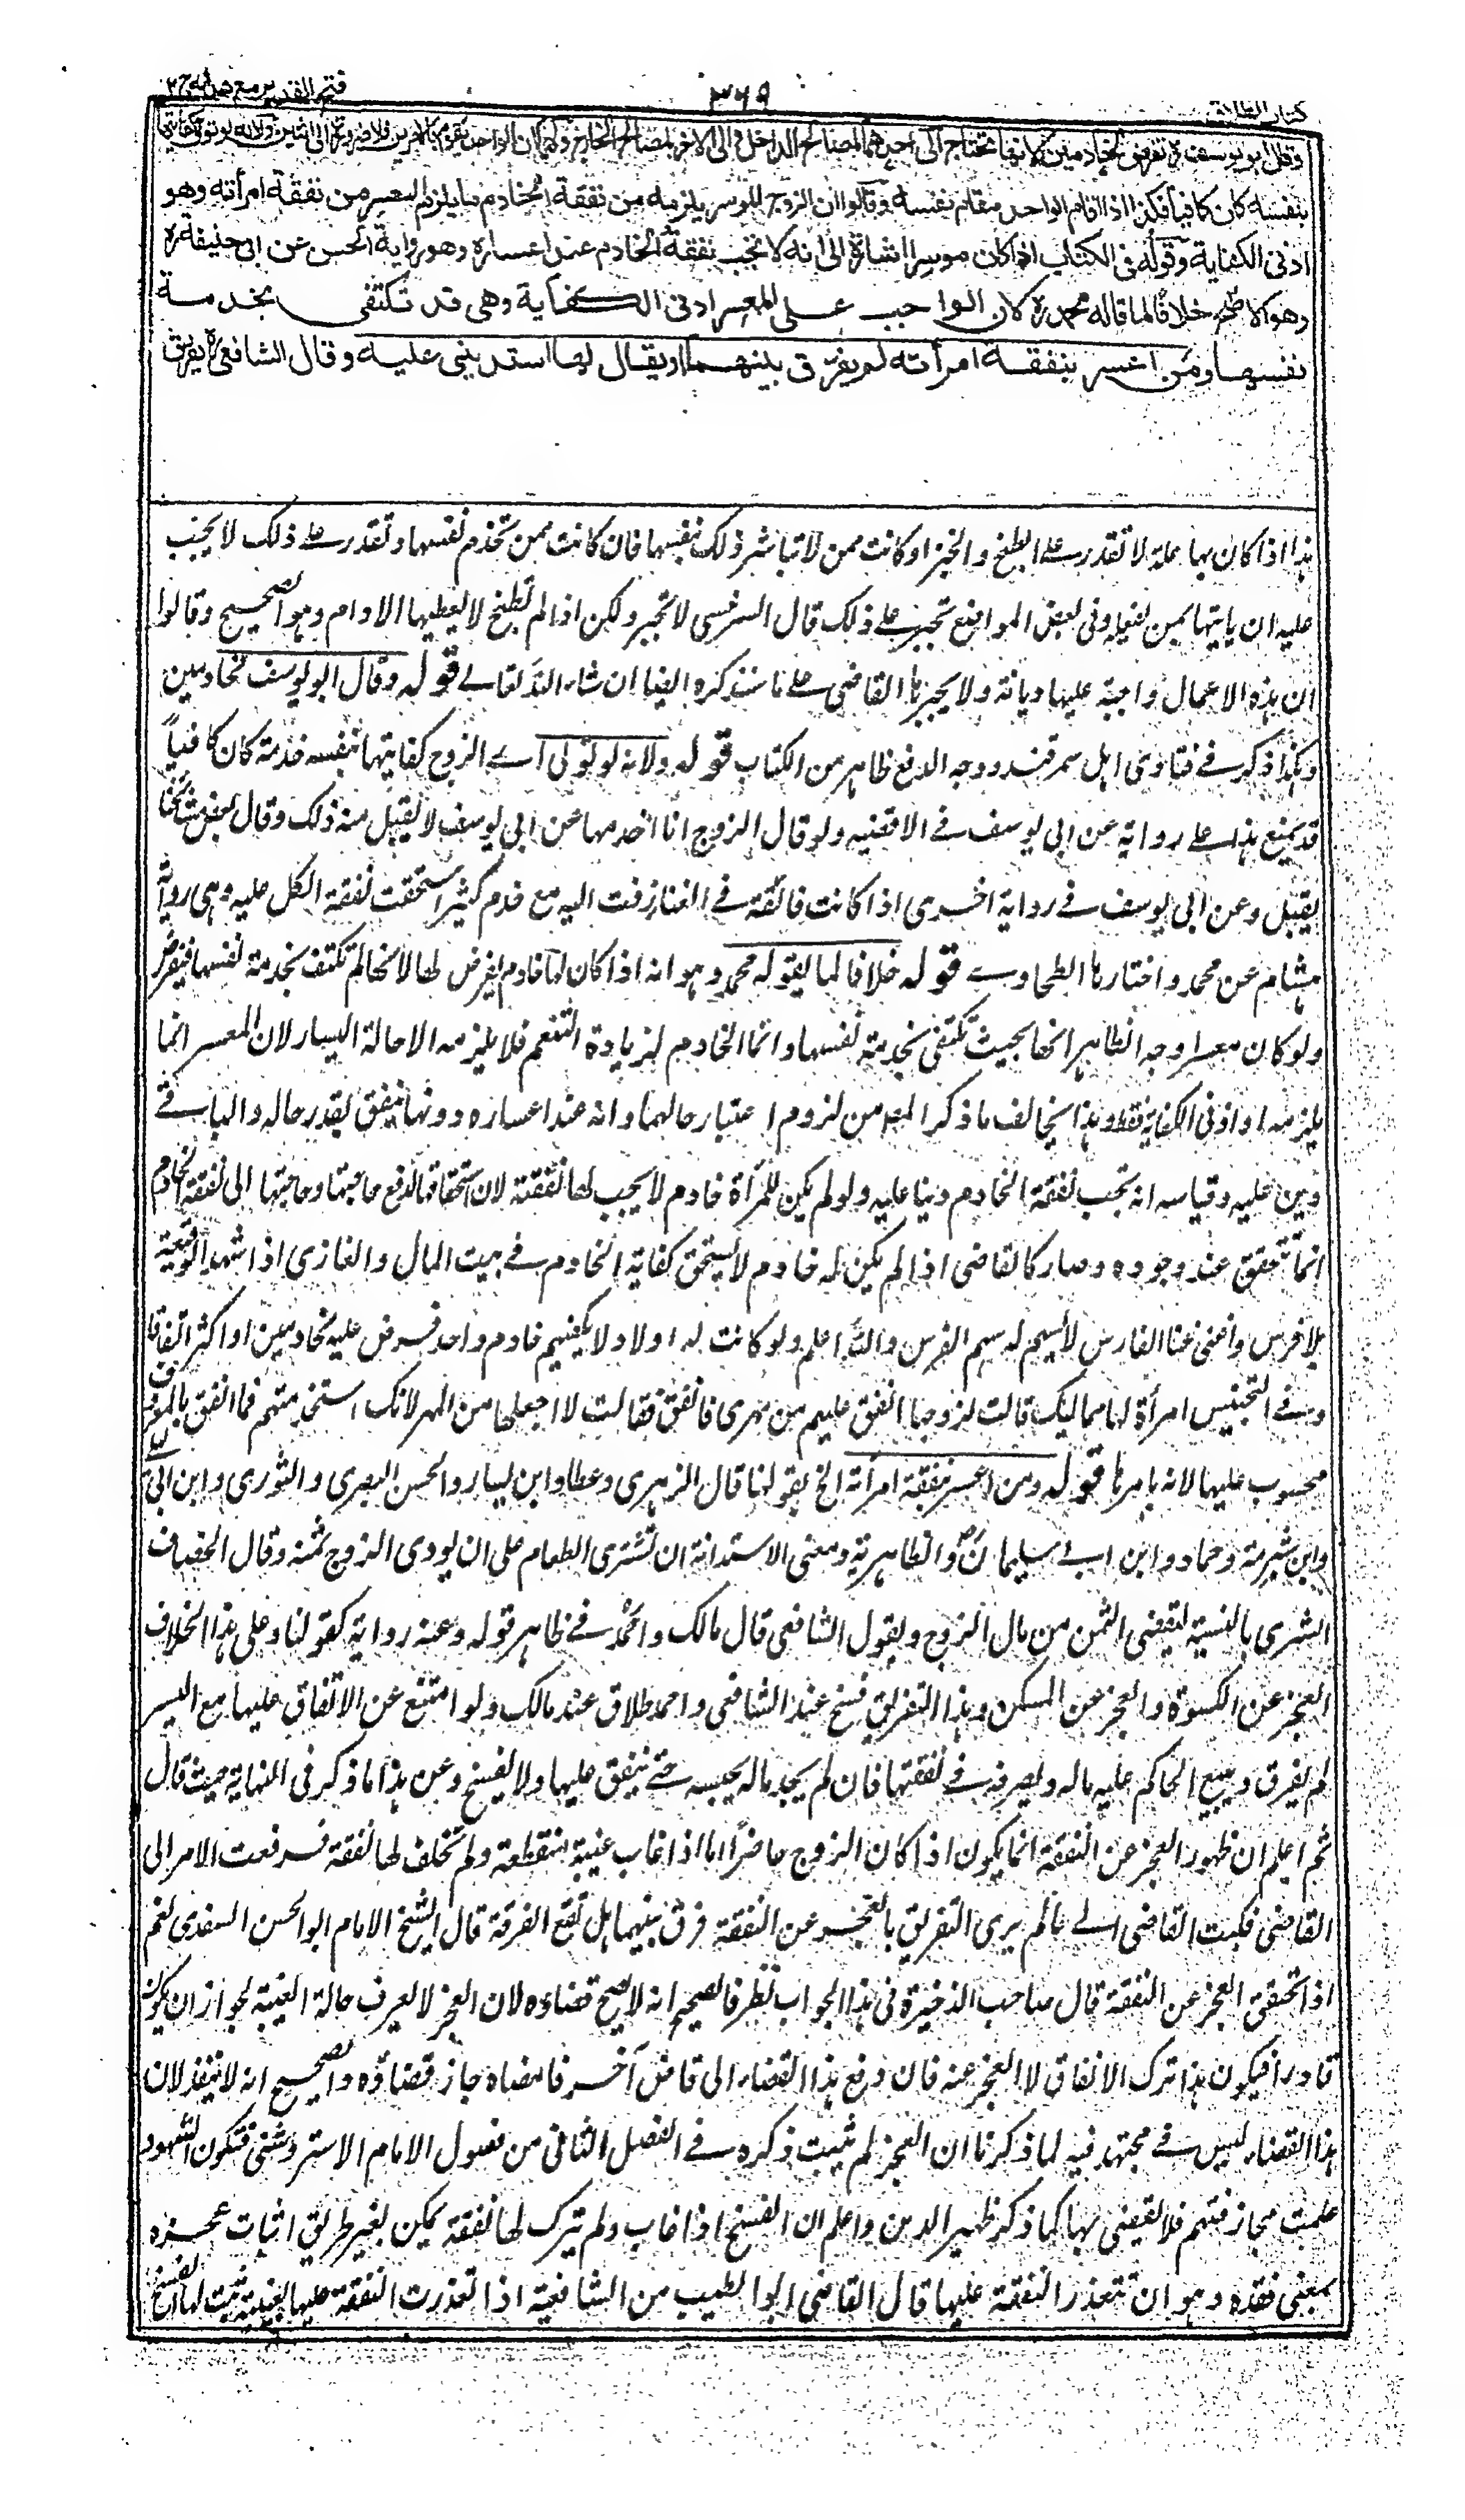 كتاب الطلاق
٣٦٩
فتح القدير مع هدايه ج ٢
وقال ابو يوسف رح تفرض لخادمين لانها تحتاج الى احدهما لمصالح الداخل والى الاخر لمصالح الخارج ولهما ان الواحد يقوم بالامرين فلا ضرورة الى اثنين ولانه لو تولى كفايتها
بنفسه كان كافيا فكذا اذا قام الواحد مقام نفسه وقالوا ان الزوج الموسر يلزمه من نفقة الخادم ما يلزم المعسر من نفقة امرأته وهو
ادنى الكفاية وقوله فى الكتاب اذا كان موسرا اشارة الى انه لا تجب نفقة الخادم عند اعساره وهو رواية الحسن عن ابى حنيفة رح
وهو الاصح خلافا لما قاله محمد رح لان الواجب على المعسر ادنى الكفاية وهى قد تكتفى بخدمة
نفسها ومن اعسر بنفقة امرأته لم يفرق بينهما ويقال لها استدينى عليه وقال الشافعى رح يفرق
هذا اذا كان بها علة لا تقدر على الطبخ والخبز او كانت ممن لا تباشر ذلك بنفسها فان كانت ممن تخدم نفسها وتقدر على ذلك لا يجب
عليه ان ياتيها بمن يفعله وفى بعض المواضع تجبر على ذلك قال السرخسى لا تجبر ولكن اذا لم تطبخ لا يعطيها الادام وهو الصحيح وقالوا
ان هذه الاعمال واجبة عليها ديانة ولا يجبرها القاضى على ما سنذكره ايضا ان شاء الله تعالى قوله وقال ابو يوسف لخادمين
وهكذا ذكر فى فتاوى اهل سمرقند ووجه الدفع ظاهر من الكتاب قوله ولانه لو تولى اى الزوج كفايتها بنفسه خدمة كان كافياً
قد يمنع هذا على رواية عن ابى يوسف فى الاقضيه ولو قال الزوج انا اخدمها عن ابى يوسف لا يقبل منه ذلك وقال بعض مشائخنا
يقبل وعن ابى يوسف فى رواية اخرى اذا كانت فائقة فى الغنا زفت اليه مع خدم كثير استحقت نفقة الكل عليه وهى رواية
هشام عن محمد واختارها الطحاوى قوله خلافا لما يقوله محمد وهو انه اذا كان لها خادم يفرض لها لانها لم تكتف بخدمة نفسها فيفرض
ولو كان معسرا وجه الظاهر انها بحيث تكتفى بخدمة نفسها وانما الخادم لزيادة التنعم فلا يلزمه الا حالة اليسار لان المعسر انما
يلزمه ادنى الكفاية فقط وهذا يخالف ما ذكر المصر من لزوم اعتبار حالهما وانه عند اعساره دونها ينفق بقدر حاله والباقى
دين عليه وقياسه انه تجب نفقة الخادم دينا عليه ولو لم يكن للمرأة خادم لا يجب لها نفقته لان استحقاقها لدفع حاجتها وحاجتها الى نفقة الخادم
انما تتحقق عند وجوده وصار كالقاضى اذا لم يكن له خادم لا يستحق كفاية الخادم فى بيت المال والغازى اذا شهد الوقيعة
بلا فرس واغنى غنا الفارس لا يسهم له سهم الفرس والله اعلم ولو كانت له اولاد لا يكفيهم خادم واحد فرض عليه لخادمين او اكثر اتفاقا
وفى التجنيس امرأة لها مماليك قالت لزوجها انفق عليهم من مهرى فانفق فقالت لا اجعلها من المهر لانك استخدمتهم فما انفق بالمعروف
محسوب عليها لانه بامرها قوله ومن اعسر بنفقة امرأته الخ بقولنا قال الزهرى وعطا وابن يسار والحسن البصرى والثورى وابن ابى ليلى
وابن شبرمة وحماد وابن ابى سليمان والظاهرية ومعنى الاستدانة ان تشترى الطعام على ان يودى الزوج ثمنه وقال الخصاف
الشرى بالنسية ليقضى الثمن من مال الزوج وبقول الشافعى قال مالك واحمد فى ظاهر قوله وعنه رواية كقولنا وعلى هذا الخلاف
العجز عن الكسوة والعجز عن المسكن وهذا التفريق فسخ عند الشافعى واحمد طلاق عند مالك ولو امتنع عن الانفاق عليها مع اليسر
لم يفرق ويبيع الحاكم عليه ماله ويصرفه فى نفقتها فان لم يجد ماله يحبسه حتى ينفق عليها ولا يفسخ وعن هذا ما ذكر فى النهاية حيث قال
ثم اعلم ان ظهور العجز عن النفقة انما يكون اذا كان الزوج حاضراً اما اذا غاب غيبة منقطعة ولم تخلف لها نفقة فرفعت الامر الى
القاضى فكتب القاضى الى عالم يرى التفريق بالعجز عن النفقة فرق بينهما هل تقع الفرقة قال الشيخ الامام ابو الحسن السغدى نعم
اذا تحقق العجز عن النفقة قال صاحب الذخيرة فى هذا الجواب نظر فالصحيح انه لا يصح قضاءه لان العجز لا يعرف حالة الغيبة لجواز ان يكون
قادرا فيكون هذا ترك الانفاق لا العجز عنه فان رفع هذا القضاء الى قاض آخر فامضاه جاز قضاؤه والصحيح انه لا ينفذ لان
هذا القضاء ليس فى مجتهد فيه لما ذكرنا ان العجز لم يثبت ذكره فى الفصل الثانى من فصول الامام الاستروشنى فتكون الشهود
علمت مجازفتهم فلا يقضى بها كما ذكر ظهير الدين واعلم ان الفسخ اذا غاب ولم يترك لها نفقة يمكن بغير طريق اثبات عجزه
بمعنى فقده وهو ان تتعذر النفقة عليها قال القاضى ابو الطيب من الشافعية اذا تعذرت النفقة عليها بغيبته ثبت لها الفسخ